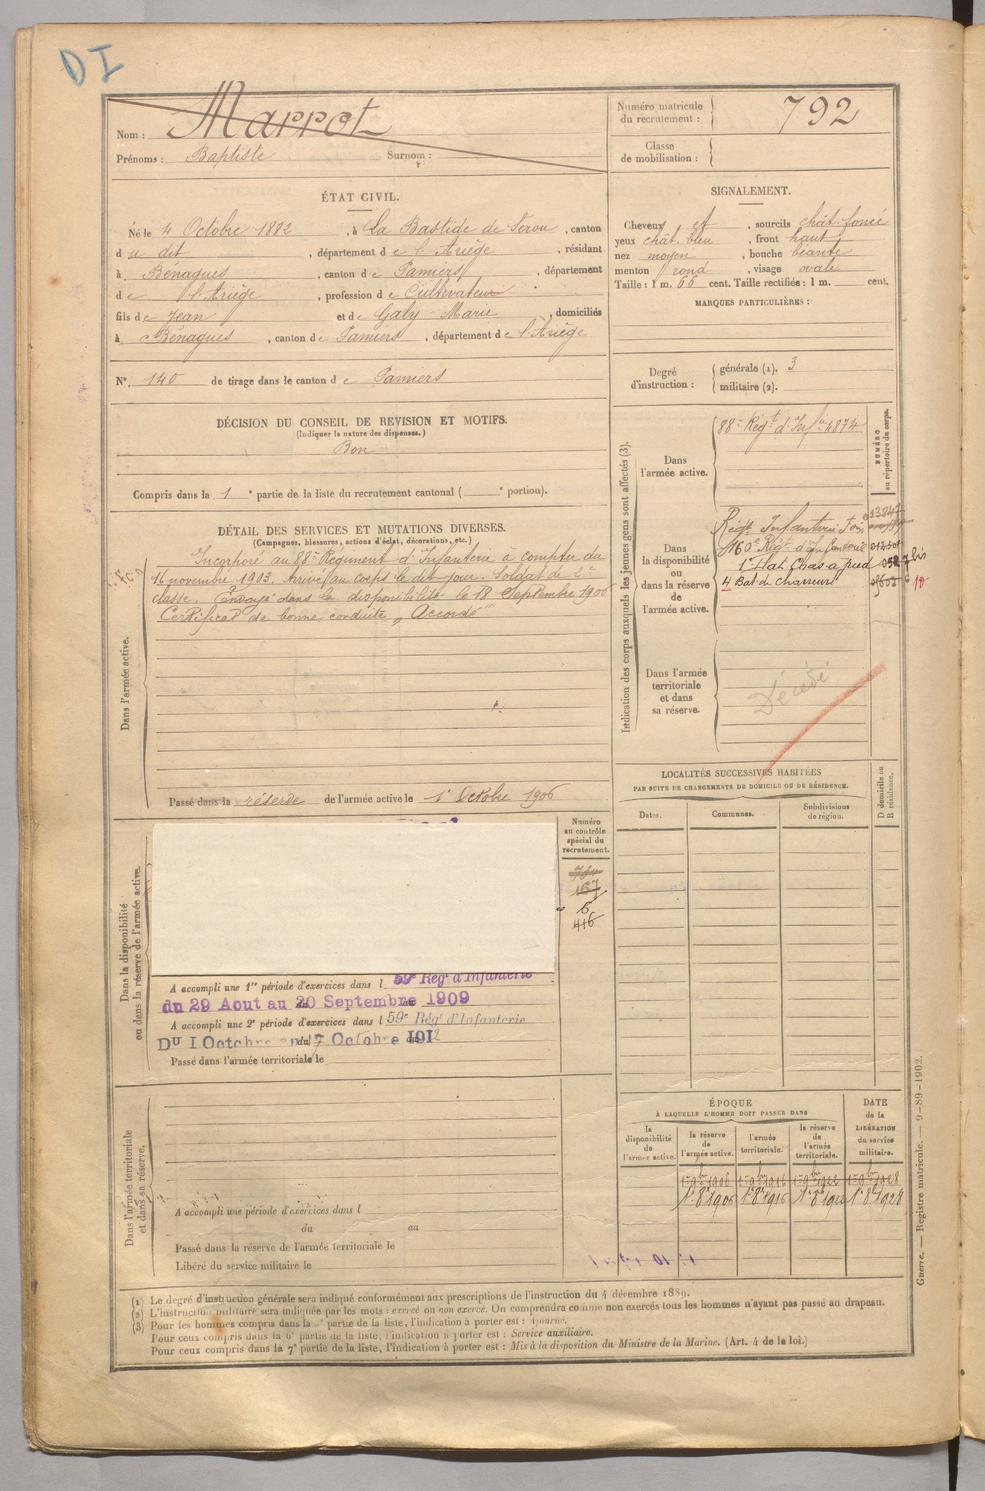 DI
Nom : Marrot
Prénoms : Baptiste Surnom :
Numéro matricule du recrutement : 792
Classe de mobilisation :
ÉTAT CIVIL.
Né le 4 Octobre 1882, à La Bastide de Sérou, canton
du dit, département de l'Ariège, résidant
à Bénagues, canton de Pamiers, département
de l'Ariège, profession de Cultivateur
fils de Jean et de Galy Marie, domiciliés
à Bénagues, canton de Pamiers, département de l'Ariège
N° 140 de tirage dans le canton de Pamiers
DÉCISION DU CONSEIL DE REVISION ET MOTIFS.
(Indiquer la nature des dispenses.)
Bon
Compris dans la 1e partie de la liste du recrutement cantonal ( e portion).
DÉTAIL DES SERVICES ET MUTATIONS DIVERSES.
(Campagnes, blessures, actions d'éclat, décorations, etc.)
Dans l'armée active.
Incorporé au 88e Régiment d'Infanterie à compter du
16 novembre 1903. Arrivé au corps le dit jour. Soldat de 2e
classe. Envoyé dans la disponibilité le 18 Septembre 1906
Certificat de bonne conduite "Accordé"
Passé dans la réserve de l'armée active le 1er Octobre 1906
SIGNALEMENT.
Cheveux et, sourcils chât. foncé
yeux chât. bleu, front haut
nez moyen, bouche béante
menton rond, visage ovale
Taille : 1 m. 66 cent. Taille rectifiée : 1 m. cent.
MARQUES PARTICULIÈRES :
Degré d'instruction : générale (1). 3
militaire (2).
Indication des corps auxquels les jeunes gens sont affectés (3).
NUMÉRO au répertoire du corps.
Dans l'armée active.
88e Régt d'Infie 4874
Dans la disponibilité ou dans la réserve de l'armée active.
Régt Infanterie Foix
160e Régt d'Infanterie
1er Bat Chas à pied
4 Bat de chasseurs
Dans l'armée territoriale et dans sa réserve.
Décédé
LOCALITÉS SUCCESSIVES HABITÉES
PAR SUITE DE CHANGEMENTS DE DOMICILE OU DE RÉSIDENCE.
Dates. Communes. Subdivisions de région. D domicile ou R résidence.
Dans la disponibilité ou dans la réserve de l'armée active.
Numéro au contrôle spécial du recrutement.
784
167
6
416
A accompli une 1re période d'exercices dans l 59e Rég d'Infanterie
du 29 Aout au 20 Septembre 1909
A accompli une 2e période d'exercices dans l 59e Rég d'Infanterie
Du 1 Octobre au 7 Octobre 1912
Passé dans l'armée territoriale le
Dans l'armée territoriale et dans sa réserve.
A accompli une période d'exercices dans l
du au
Passé dans la réserve de l'armée territoriale le
Libéré du service militaire le
ÉPOQUE
À LAQUELLE L'HOMME DOIT PASSER DANS
la disponibilité de l'armée active. la réserve de l'armée active. l'armée territoriale. la réserve de l'armée territoriale.
DATE de la LIBÉRATION du service militaire.
1er 9bre 1906 1er 9bre 1916 1er 9bre 1922 1er 9bre 1928
1er 8bre 1906 1er 8bre 1916 1er 8bre 1922 1er 8bre 1928
(1) Le degré d'instruction générale sera indiqué conformément aux prescriptions de l'instruction du 4 décembre 1889.
(2) L'instruction militaire sera indiquée par les mots : exercé ou non exercé. On comprendra comme non exercés tous les hommes n'ayant pas passé au drapeau.
(3) Pour les hommes compris dans la partie de la liste, l'indication à porter est : Ajourné.
Pour ceux compris dans la 6e partie de la liste, l'indication à porter est : Service auxiliaire.
Pour ceux compris dans la 7e partie de la liste, l'indication à porter est : Mis à la disposition du Ministre de la Marine. (Art. 4 de la loi.)
Guerre. — Registre matricule. — 9-89-1902.